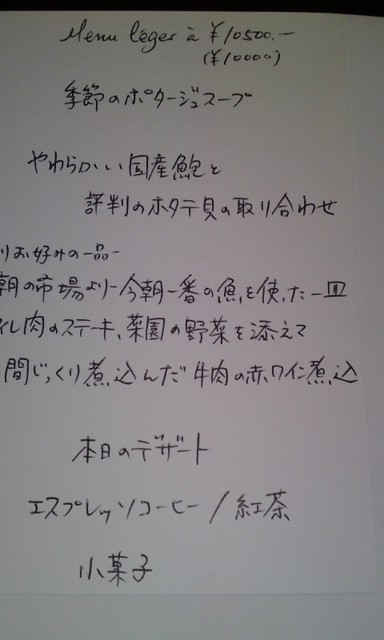 Menu léger à ¥10500.—
(¥10000)
季節のポタージュスープ
やわらかい国産鮑と
評判のホタテ貝の取り合わせ
りお好みの一品-
朝の市場より-今朝一番の魚を使った一皿
ィレ肉のステーキ、菜園の野菜を添えて
間じっくり煮込んだ牛肉の赤ワイン煮込
本日のデザート
エスプレッソコーヒー/紅茶
小菓子